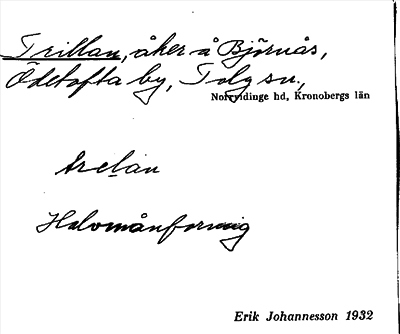 Trillan, åker å Björnås,
Ödetofta by, Tolg sn.,
Norrvidinge hd, Kronobergs län
Halvmånformig
Erik Johannesson 1932